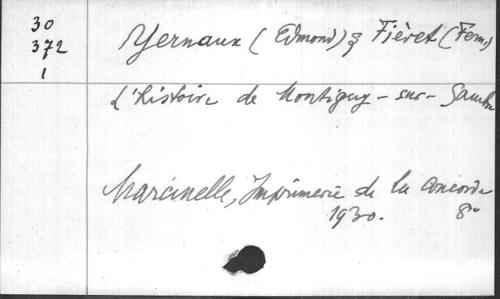 30
372
1
Yernaux (Edmond) & Fièvet (Fern.)
L'Histoire de Montigny-sur-Sambre
Marcinelle, Imprimerie de la Concorde
1930. 8°